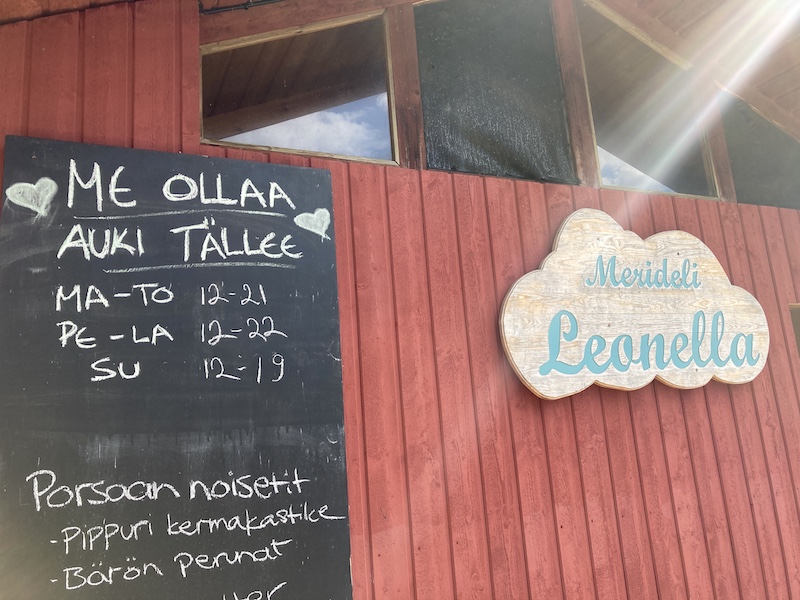 ME OLLAA
AUKI TÄLLEE
MA-TO 12-21
PE-LA 12-22
SU 12-19
Porsaan noisetit
- Pippuri kermakastike
- Bärön perunat
Merideli
Leonella